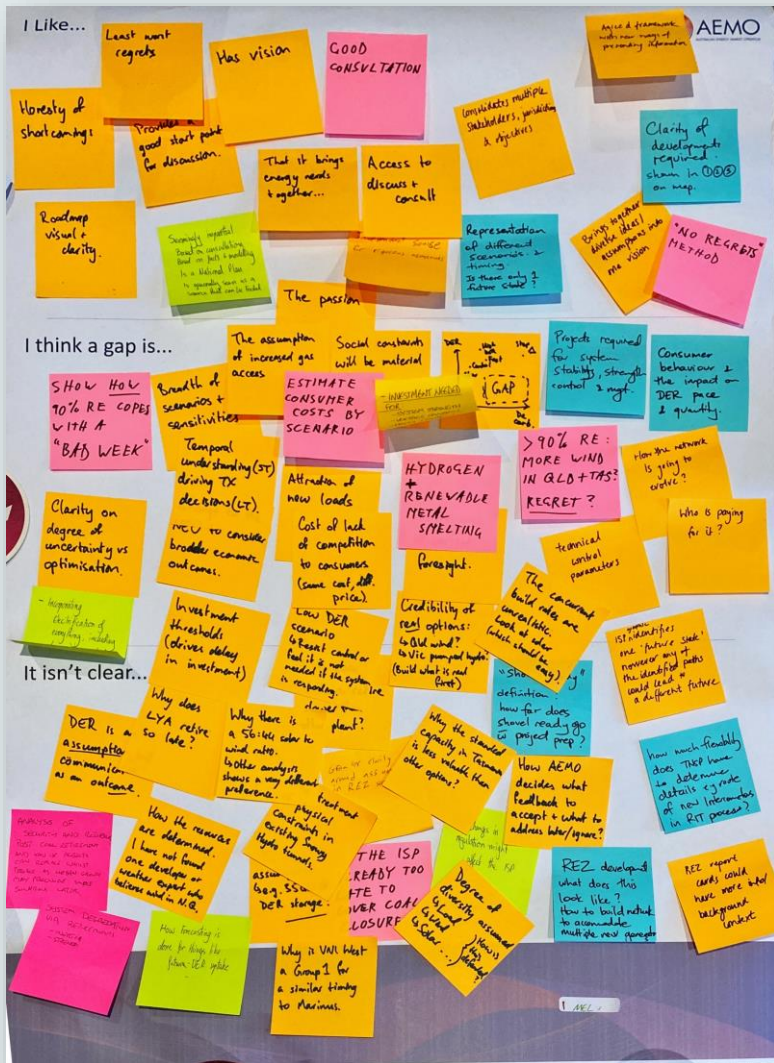 I Like...
AEMO
Least worst
regrets
Has vision
GOOD
CONSULTATION
Agreed framework
with new ways of
presenting information
Honesty of
shortcomings
Provides a
good start point
for discussion.
That it brings
energy needs
together...
Access to
discuss +
consult
Consolidates multiple
stakeholders, jurisdictions
& objectives
Clarity of
developments
required
shown in ①②③
on map.
Roadmap
visual +
clarity.
Seemingly impartial
Based on consultation
Based on facts + modelling
Is a National Plan
is generally seen as a
source that can be trusted
Representation
of different
scenarios &
timing
Is there only 1
future state?
Brings together
diverse ideas/
assumptions into
one vision
"NO REGRETS"
METHOD
The passion
I think a gap is...
The assumption
of increased gas
access
Social constraints
will be material
DER
GAP
Projects required
for system
stability, strength
control & mgt.
Consumer
behaviour &
the impact on
DER pace
& quantity.
SHOW HOW
90% RE COPES
WITH A
"BAD WEEK"
Breadth of
scenarios +
sensitivities
ESTIMATE
CONSUMER
COSTS BY
SCENARIO
- INVESTMENT NEEDED
FOR
Temporal
understanding (ST)
driving TX
decisions (LT).
Attraction of
new loads
HYDROGEN
+
RENEWABLE
METAL
SMELTING
>90% RE:
MORE WIND
IN QLD + TAS?
REGRET?
How the network
is going to
evolve?
Clarity on
degree of
uncertainty vs
optimisation.
to consider
broader economic
outcomes.
Cost of lack
of competition
to consumers
(same cost, diff.
price).
foresight.
technical
control
parameters
Who is paying
for it?
- Incorporating
electrification of
everything, including
Investment
thresholds
(drives delay
in investment)
Low DER
scenario
↳ Resist control or
feel it is not
needed if the system
is responding.
Credibility of
real options:
↳ Qld wind?
↳ Vic pumped hydro?
(Build what is real
first)
The concurrent
build rates are
unrealistic.
Look at solar
(which should be
easy)
ISP identifies
one 'future state'
however any of
the identified paths
would lead to
a different future
It isn't clear...
DER is a
assumption
as an outcome.
Why does
LYA retire
so late?
Why there is
solar to
wind ratio.
↳ Other analysis
shows a very different
preference.
plant?
definition?
how far does
shovel ready go
in project prep?
Why the stranded
capacity in Tasmania
is less valuable than
other options?
How AEMO
decides what
feedback to
accept + what to
address later/ignore?
how much flexibility
does TNSP have
to determine
details eg route
of new Interconnectors
in RIT process?
How the resources
are determined.
I have not found
one developer or
weather expert who
believes wind in N.Q.
treatment
physical
constraints in
existing Snowy
Hydro tunnels.
DER storage?
THE ISP
COAL
CLOSURE
regulation might
affect the ISP
Degree of
diversity assumed
↳ Load
↳ Wind
↳ Solar ...
How is
this
defended?
REZ development
what does this
look like?
How to build network
to accommodate
multiple new generators
REZ report
cards could
have more intro/
background
context
How forecasting is
done for things like
future DER uptake
Why is VNI West
a Group 1 for
a similar timing
to Marinus.
MEL